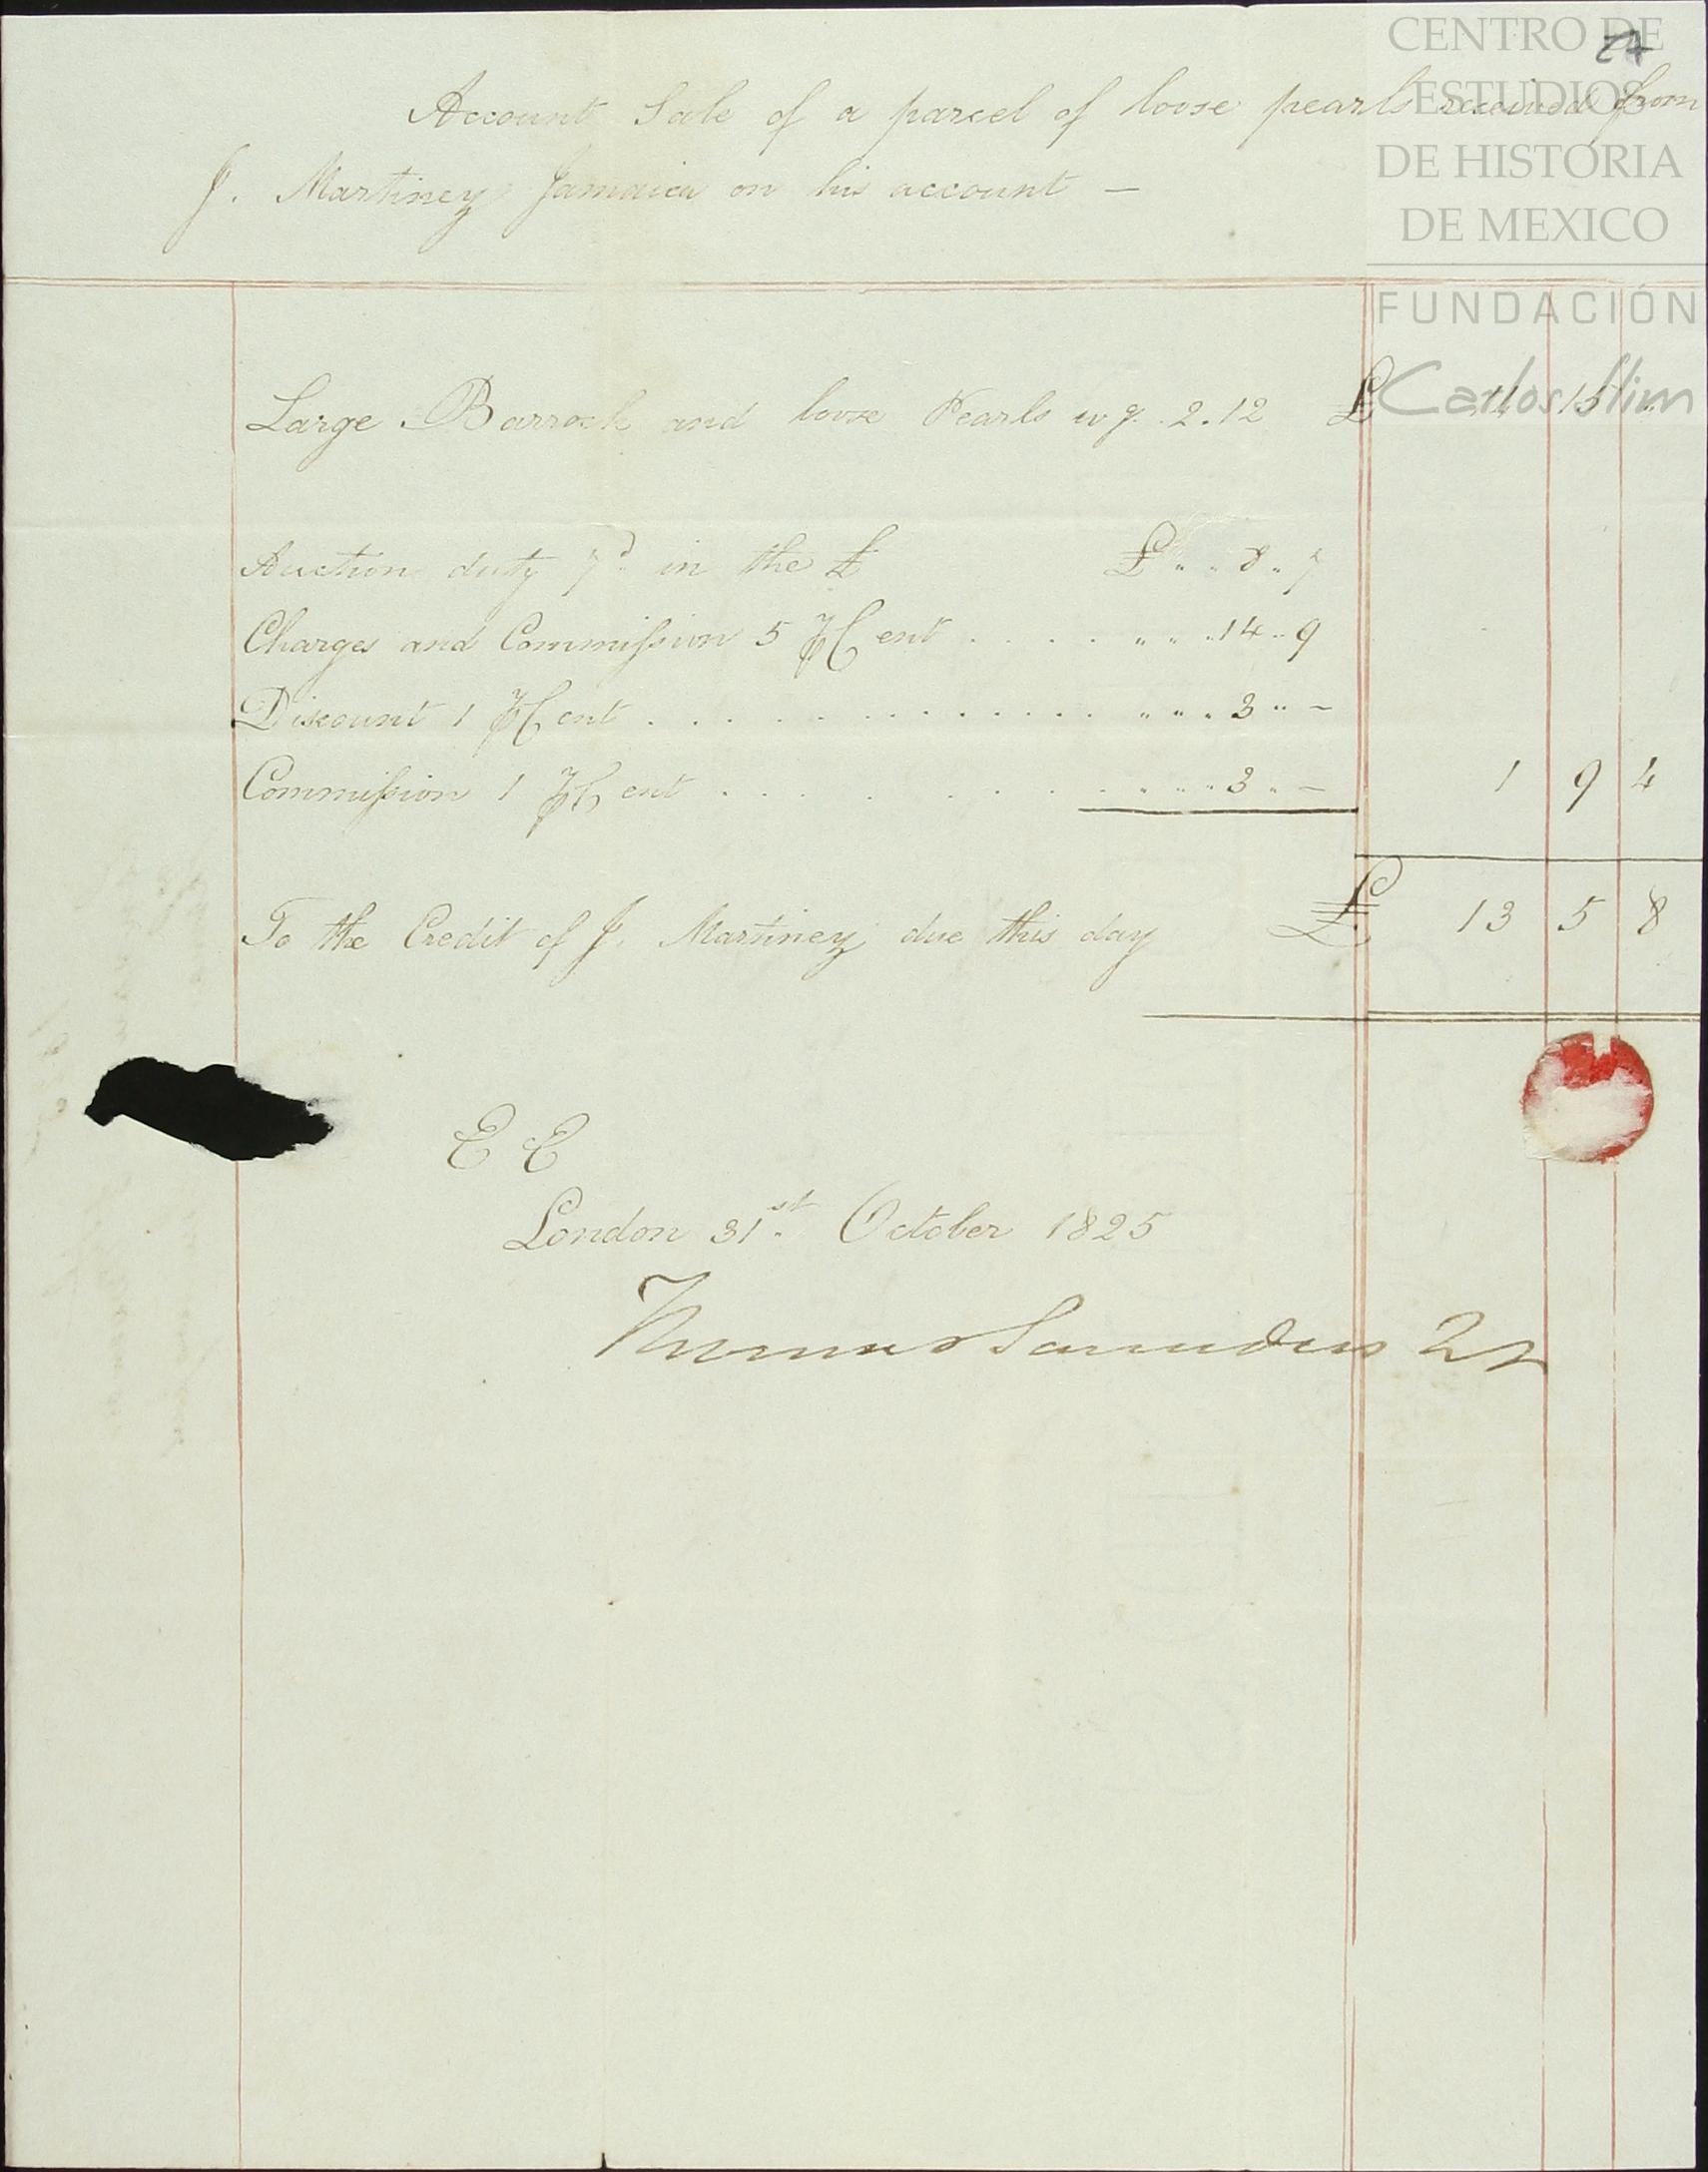 27
CENTRO DE
ESTUDIOS
DE HISTORIA
DE MEXICO
FUNDACIÓN
Carlos Slim
Account Sale of a parcel of loose pearls received from
J. Martinez Jamaica on his account —
Large Barrock and loose Pearls wg. 2.12 £ 14 15 ..
Auction duty 7d in the £ £ " " 8 " 7
Charges and Commission 5 ⅌ Cent . . . . " " " 14 " 9
Discount 1 ⅌ Cent . . . . . . . . . . . . " " " 3 " –
Commission 1 ⅌ Cent . . . . . . . . " " " 3 " – 1 9 4
To the Credit of J. Martinez due this day £ 13 5 8
E E
London 31st October 1825
Thomas Saunders